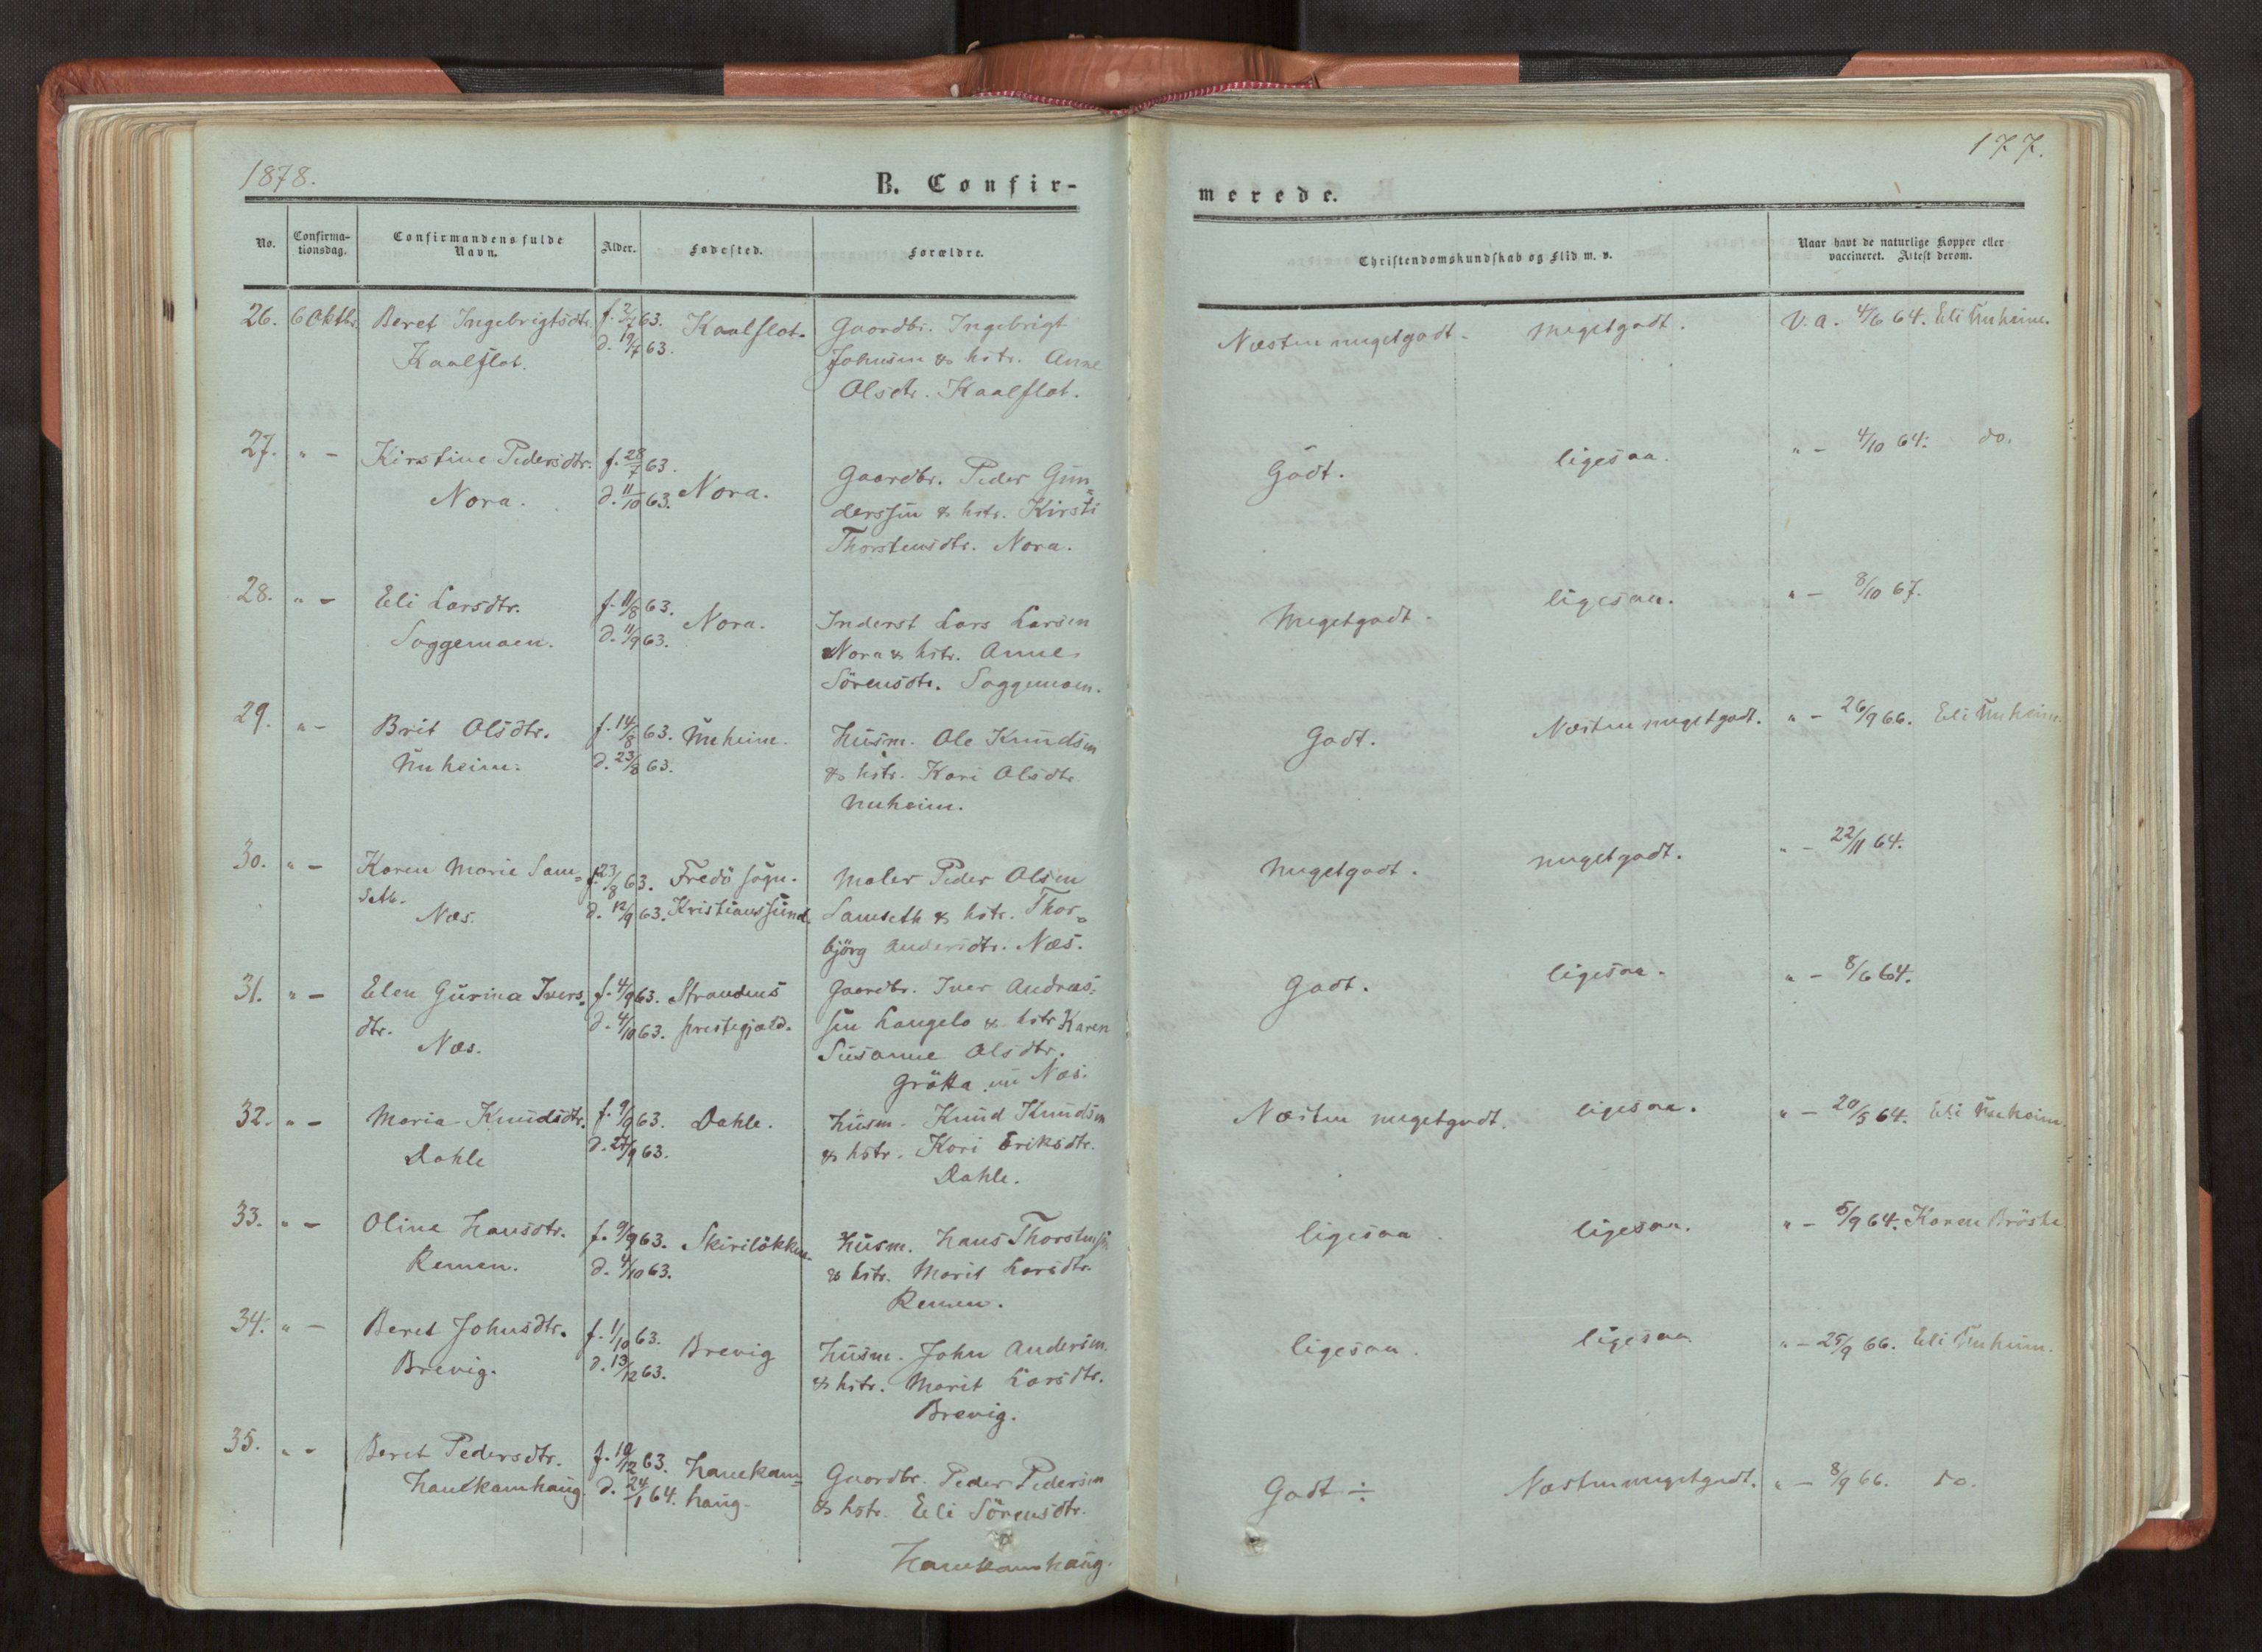 1878.
B. Confir-
No.
Confirma-
tionsdag.
Confirmandens fulde
Navn.
Alder.
Fødested.
Forældre.
26. 6 Oktbr. Beret Ingebrigtsdtr. f. 2/7 63. Kaalflot. Gaardbr. Ingebrigt
Kaalflot. d. 19/7 63. Johnsen & hstr. Anne
Olsdtr. Kaalflot.
27. " - Kirstine Pedersdtr. f. 28/7 63. Nora. Gaardbr. Peder Gun=
Nora. d. 11/10 63. derssen & hstr. Kirsti
Thorstensdtr. Nora.
28. " - Eli Larsdtr. f. 11/8 63. Nora. Inderst Lars Larsen
Soggemoen. d. 11/9 63. Nora & hstr. Anne
Sörensdtr. Soggemoen.
29. " - Brit Olsdtr. f. 14/8 63. Unheim. Husm. Ole Knudsen
Unheim. d. 23/8 63. & hstr. Kari Olsdtr.
Unheim.
30. " - Karen Marie Sam= f. 23/8 63. Fredö sogn. Maler Peder Olsen
seth. d. 12/9 63. Kristianssund. Samseth & hstr. Thor=
Næs. björg Andersdtr. Næs.
31. " - Elen Gurina Ivers= f. 4/9 63. Strandens Gaardbr. Iver Andreas=
dtr. d. 4/10 63. prestegjæld. sen Langelo & hstr. Karen
Næs. Susanne Olsdtr.
Grötta nu Næs.
32. " - Maria Knudsdtr. f. 9/9 63. Dahle. Husm. Knud Knudsen
Dahle d. 27/9 63. & hstr. Kari Eriksdtr.
Dahle.
33. " - Oline Hansdtr. f. 9/9 63. Skirilökken. Husm. Hans Thorstensen
Remen. d. 4/10 63. & hstr. Marit Larsdtr.
Remen.
34. " - Beret Johnsdtr. f. 1/10 63. Brevig Husm. John Andersen
Brevig. d. 13/12 63. & hstr. Marit Larsdtr.
Brevig.
35. " - Beret Pedersdtr. f. 10/12 63. Hanekam= Gaardbr. Peder Pedersen
Hanekamhaug. d. 24/1 64. haug. & hstr. Eli Sörensdtr.
Hanekamhaug.
177.
merede.
Christendomskundskab og Flid m. v.
Naar havt de naturlige Kopper eller
vaccineret. Attest derom.
Næsten megetgodt. megetgodt. v. a. 4/6 64. Eli Unheim.
Godt. ligesaa. " - 4/10 64. do.
Megetgodt. ligesaa. " - 8/10 67.
Godt. Næsten megetgodt. " - 26/9 66. Eli Unheim.
Megetgodt. megetgodt. " - 22/11 64.
Godt. ligesaa. " - 8/6 64.
Næsten megetgodt. ligesaa. " - 20/5 64. Eli Unheim.
ligesaa. ligesaa. " - 5/9 64. Karen Bröste
ligesaa. ligesaa. " - 25/9 66. Eli Unheim.
Godt ÷ Næsten megetgodt. " - 8/9 66. do.